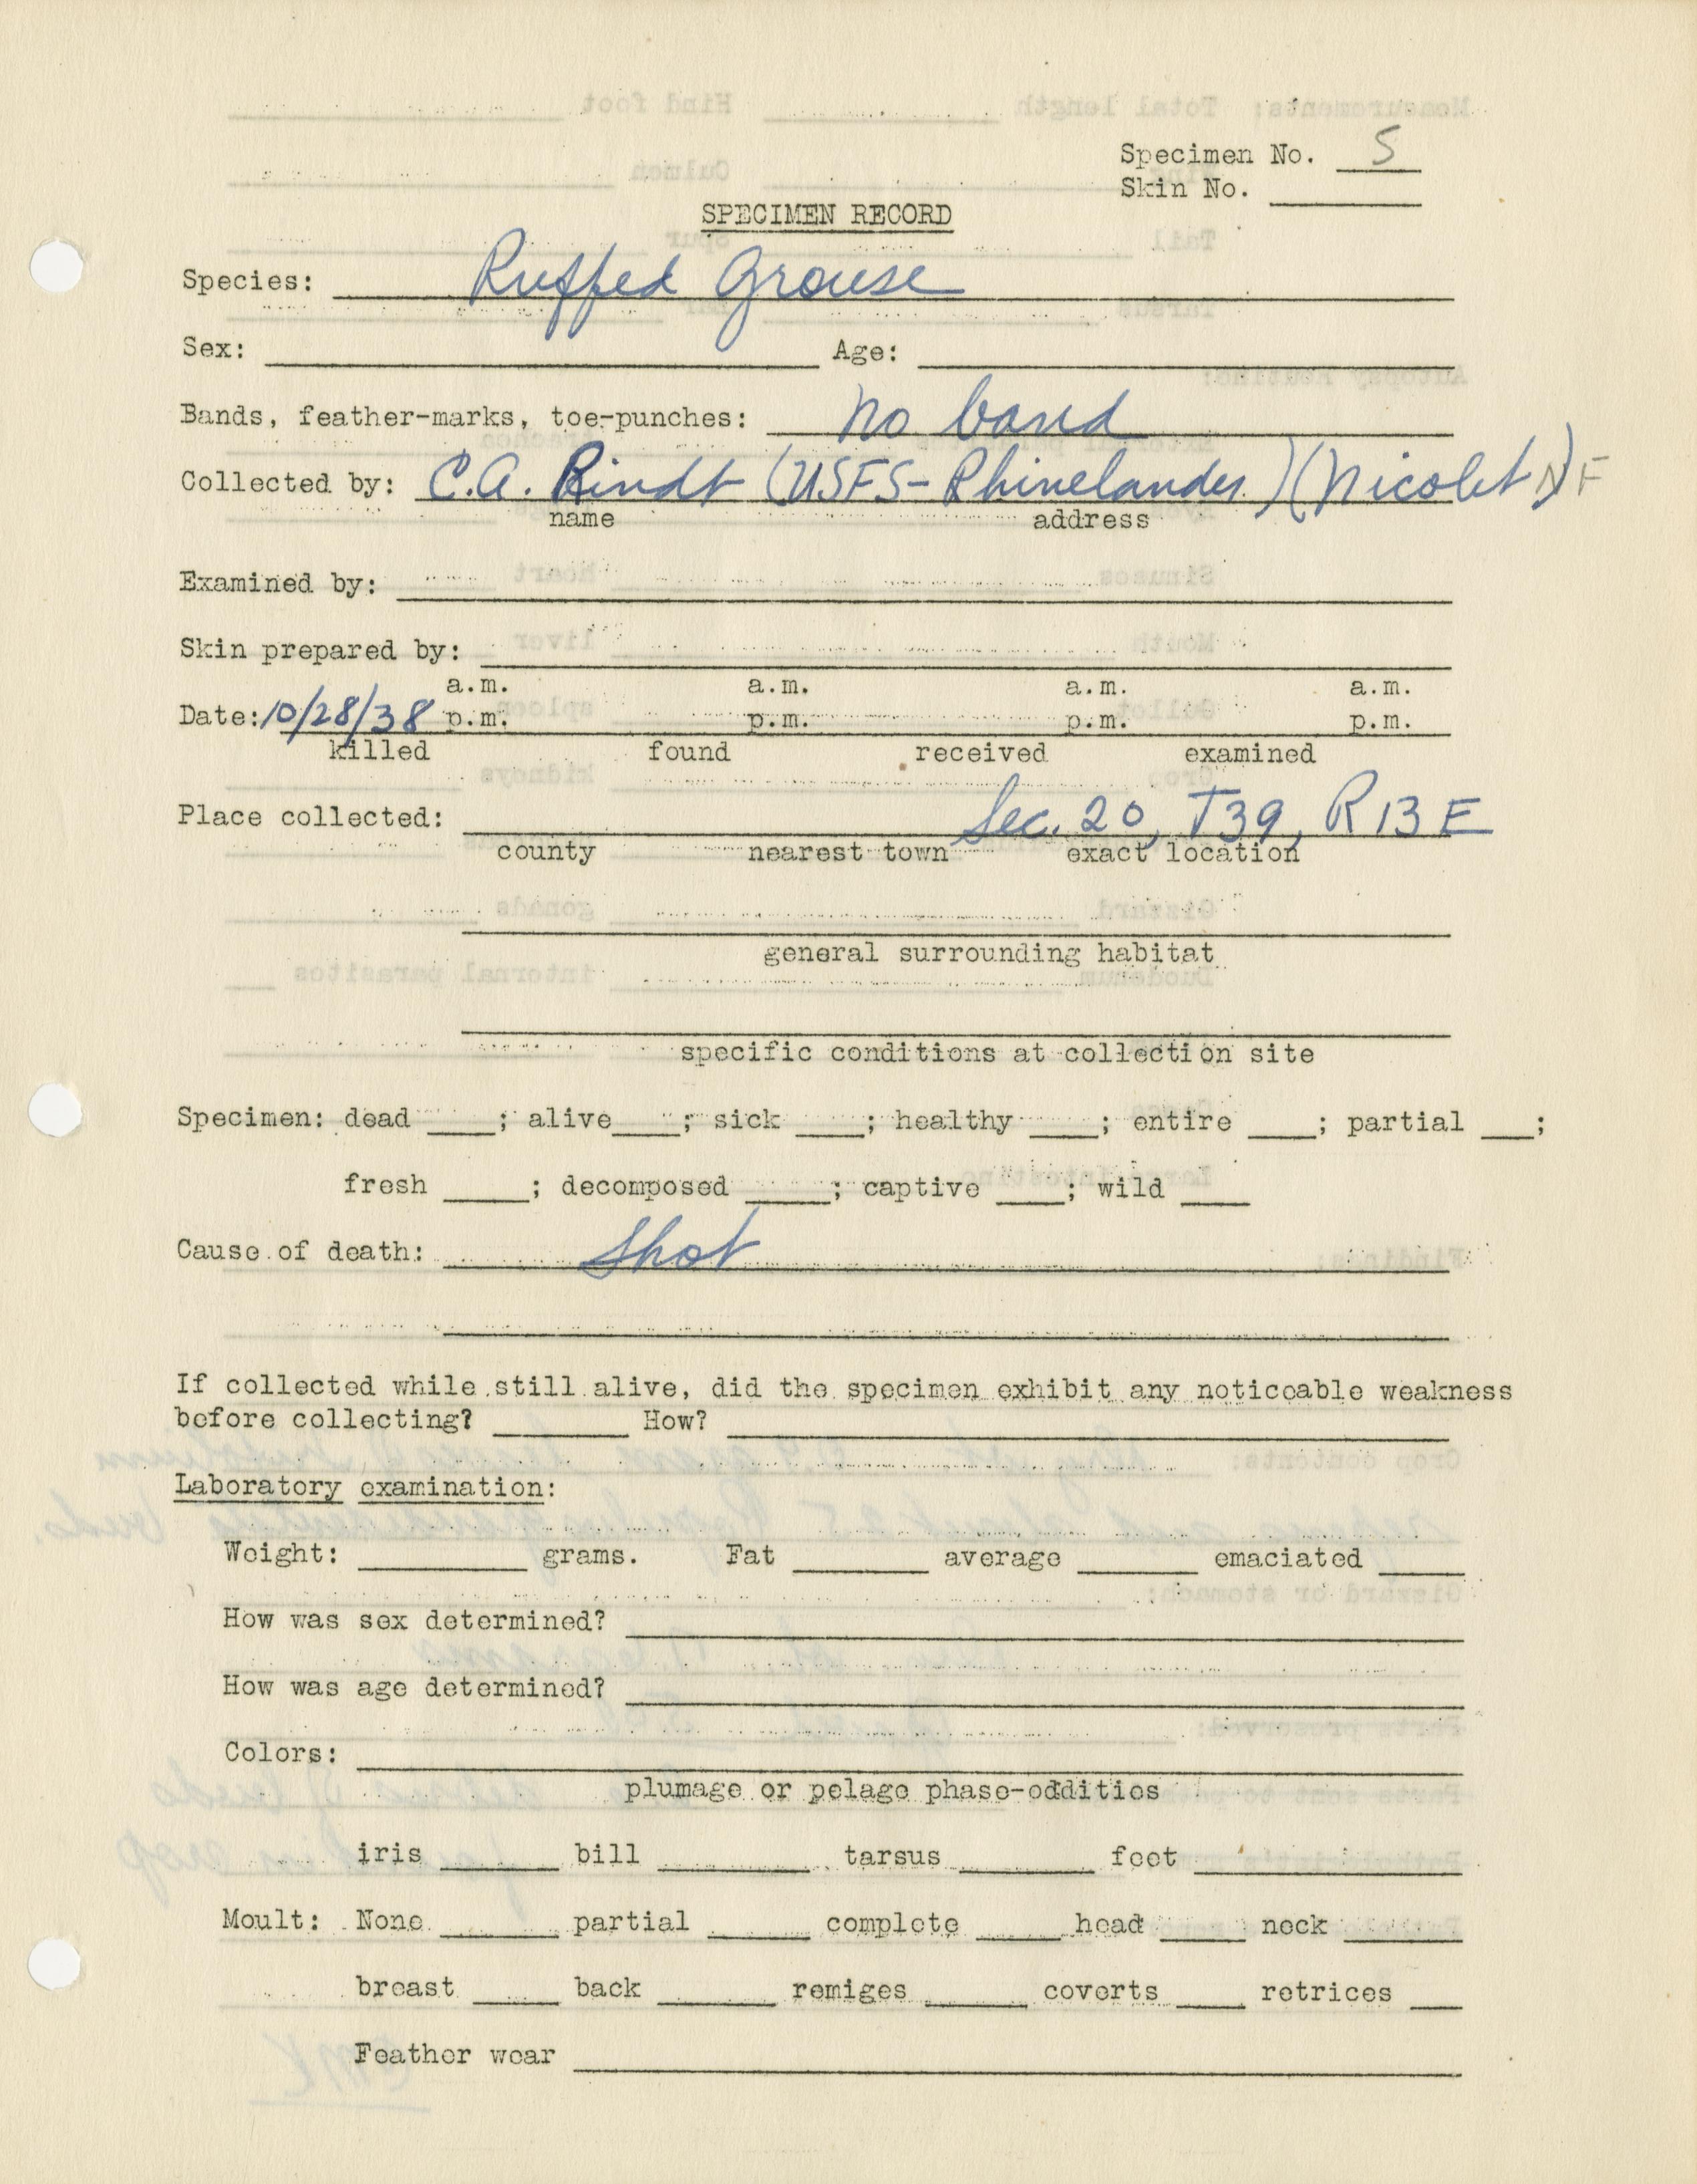 Specimen No. 5
Skin No. ____
SPECIMEN RECORD
Species: Ruffed Grouse
Sex: ____ Age: ____
Bands, feather-marks, toe-punches: No band
Collected by: C.A. Rindt (USFS-Rhinelander) (Nicolet NF)
name address
Examined by: ____
Skin prepared by: ____
a.m. a.m. a.m. a.m.
Date: 10/28/38 p.m. p.m. p.m. p.m.
killed found received examined
Place collected: Sec. 20, T39, R13E
county nearest town exact location
general surrounding habitat
specific conditions at collection site
Specimen: dead ____; alive ____; sick ____; healthy ____; entire ____; partial ____;
fresh ____; decomposed ____; captive ____; wild ____
Cause of death: Shot
If collected while still alive, did the specimen exhibit any noticeable weakness
before collecting? ____ How? ____
Laboratory examination:
Weight: ____ grams. Fat ____ average ____ emaciated ____
How was sex determined? ____
How was age determined? ____
Colors: ____
plumage or pelage phase-oddities
iris ____ bill ____ tarsus ____ foot ____
Moult: None ____ partial ____ complete ____ head ____ neck ____
breast ____ back ____ remiges ____ coverts ____ retrices ____
Feather wear ____